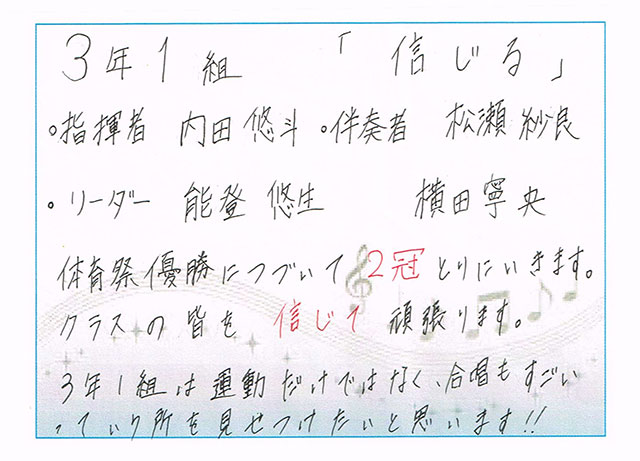 3年1組 「信じる」
・指揮者 内田悠斗 ・伴奏者 松瀬紗良
・リーダー 能登悠生 横田寧央
体育祭優勝につづいて2冠とりにいきます。
クラスの皆を 信じて 頑張ります。
3年1組は運動だけではなく、合唱もすごい
っていう所を見せつけたいと思います!!